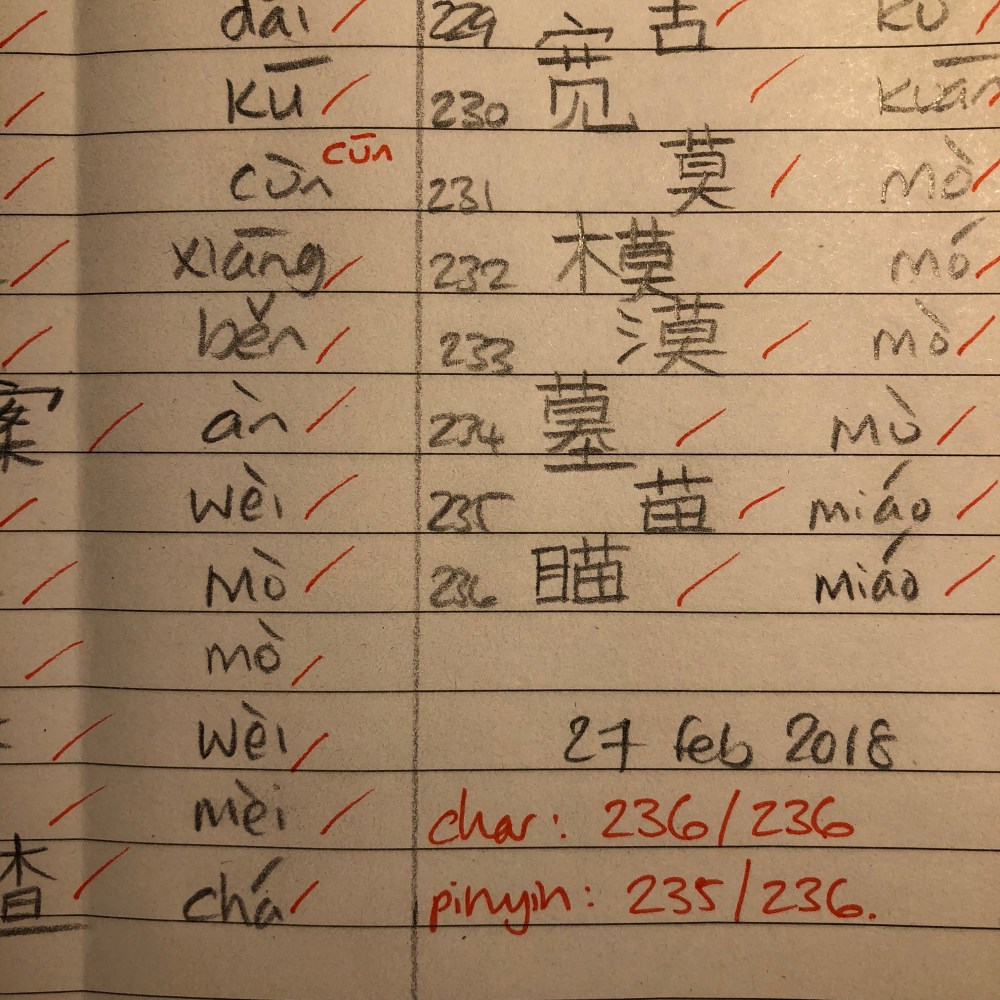 dāi
kū
cùn cūn
xiāng
běn
案 àn
wèi
mò
mò
wèi
mèi
查 chá
229
230 宽 kuān
231 莫 mò
232 模 mó
233 漠 mò
234 墓 mù
235 苗 miáo
236 瞄 miáo
27 feb 2018
char: 236/236
pinyin: 235/236.